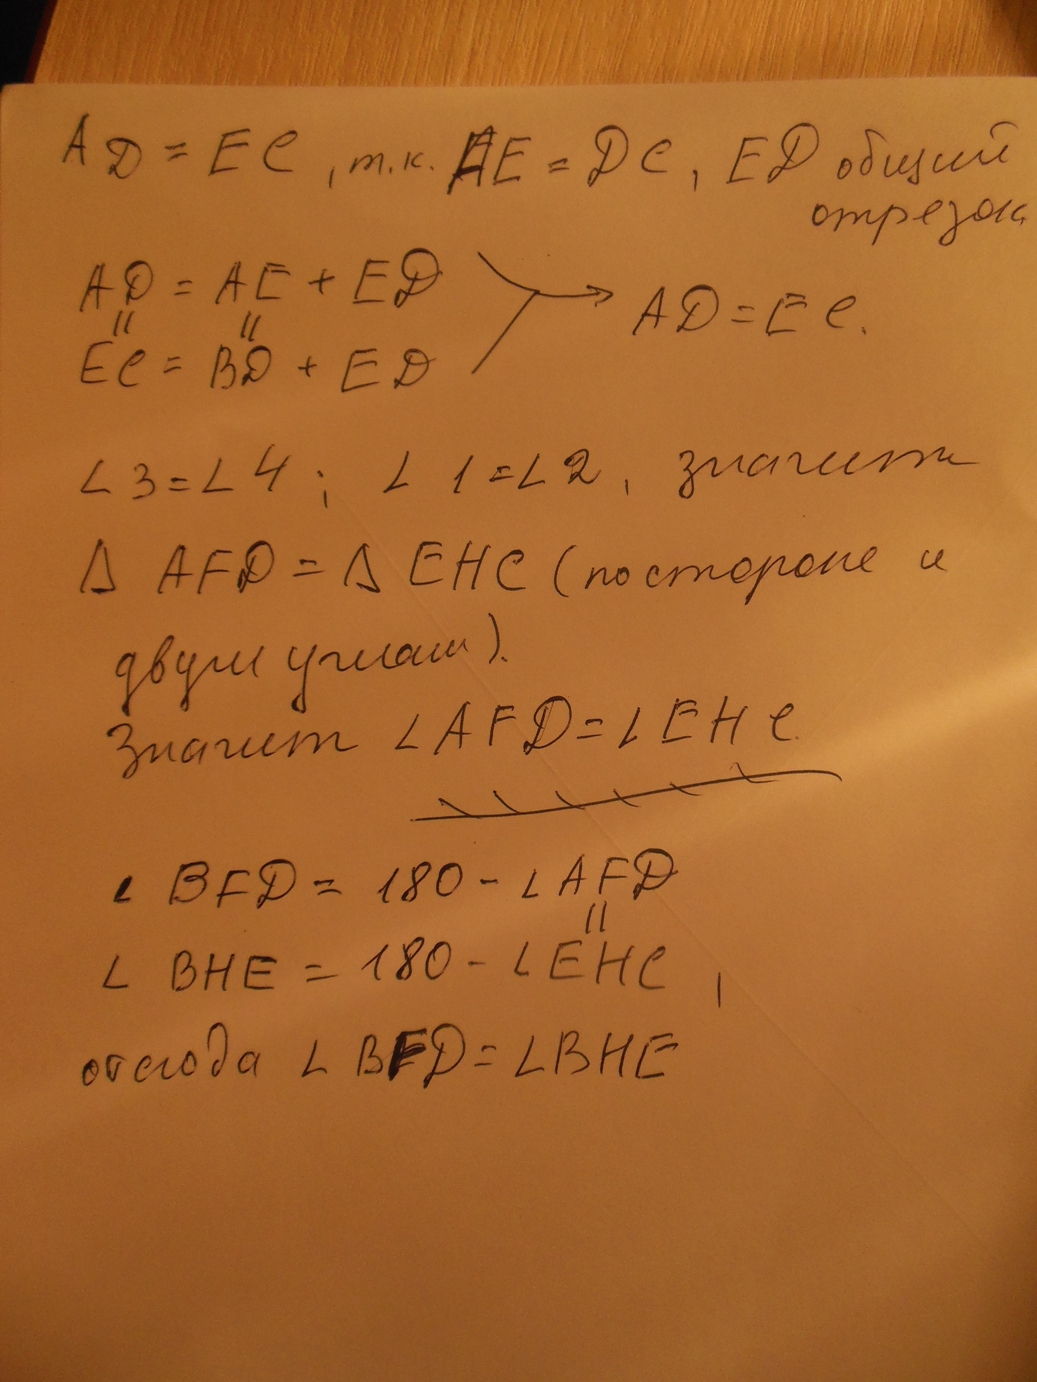 AD = EC, т.к. AE = DC, ED общий
отрезок
AD = AE + ED
"      "
EC = BD + ED
AD = EC.
∠3=∠4; ∠1=∠2, значит
Δ AFD = Δ EHC (по стороне и
двум углам).
Значит ∠AFD=∠EHC.
∠BFD = 180 - ∠AFD
"
∠BHE = 180 - ∠EHC,
отсюда ∠BFD=∠BHE